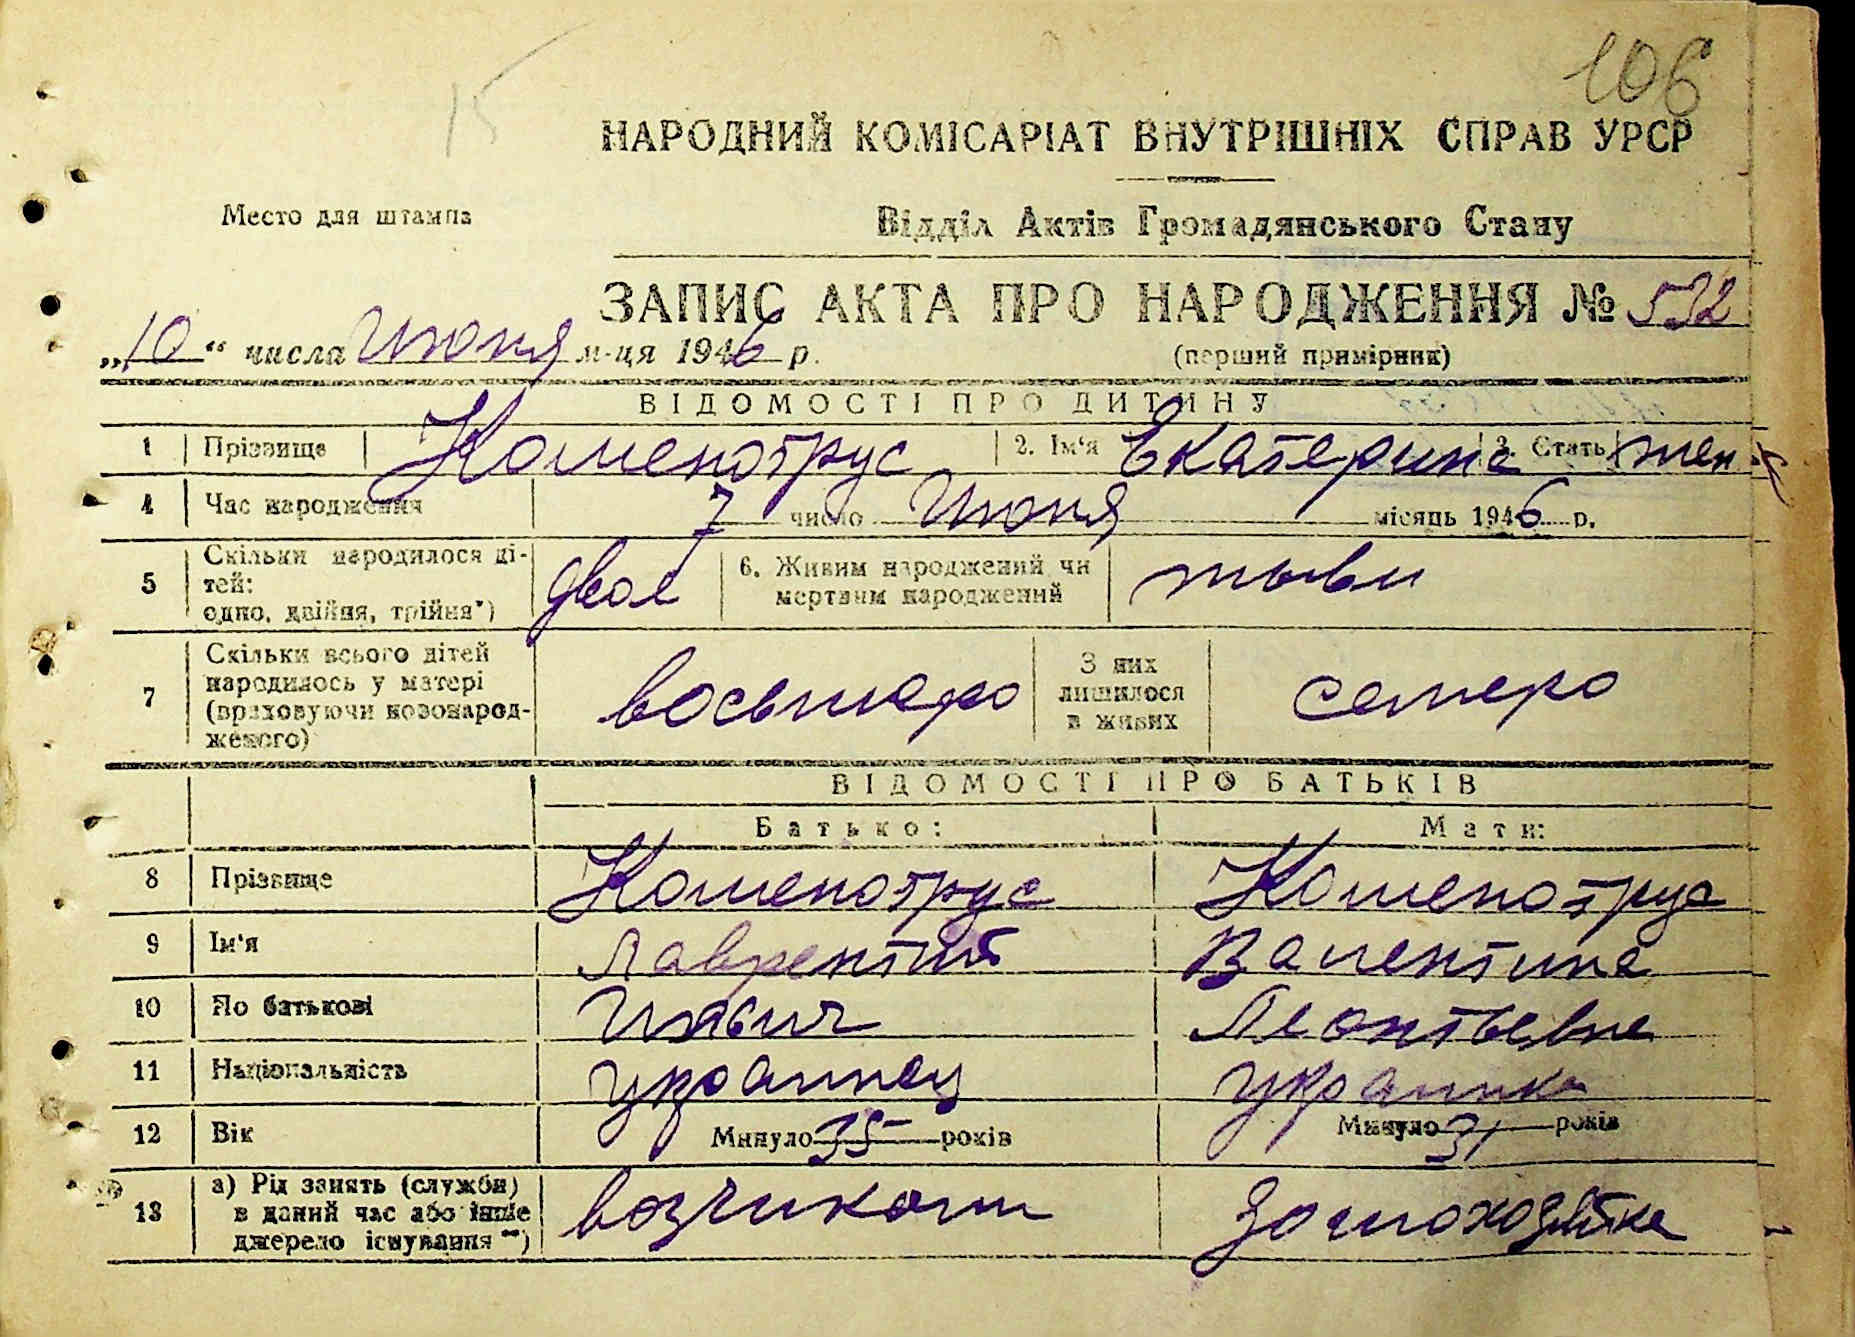 15
106
НАРОДНИЙ КОМІСАРІАТ ВНУТРІШНІХ СПРАВ УРСР
Место для штампа
Відділ Актів Громадянського Стану
ЗАПИС АКТА ПРО НАРОДЖЕННЯ № 532
„10“ числа Июня м-ця 1946 р.
(перший примірник)
ВІДОМОСТІ ПРО ДИТИНУ
1 Прізвище Каменотрус 2. Ім'я Екатерина 3. Стать жен
4 Час народження 7 число Июня місяць 1946 р.
5 Скільки народилося ді-
тей:
одно, двійня, трійня*) двое 6. Живим народжений чи
мертвим народжений живы
7 Скільки всього дітей
народилось у матері
(враховуючи новонарод-
женого) восьмеро З них
лишилося
в живих семеро
ВІДОМОСТІ ПРО БАТЬКІВ
Батько: Мати:
8 Прізвище Каменотрус Каменотрус
9 Ім'я Лаврентий Валентина
10 По батькові Ильич Леонтьевна
11 Національність украинец украинка
12 Вік Минуло 35 років Минуло 31 років
13 а) Рід занять (служби)
в даний час або інше
джерело існування**) возчиком домохозяйка